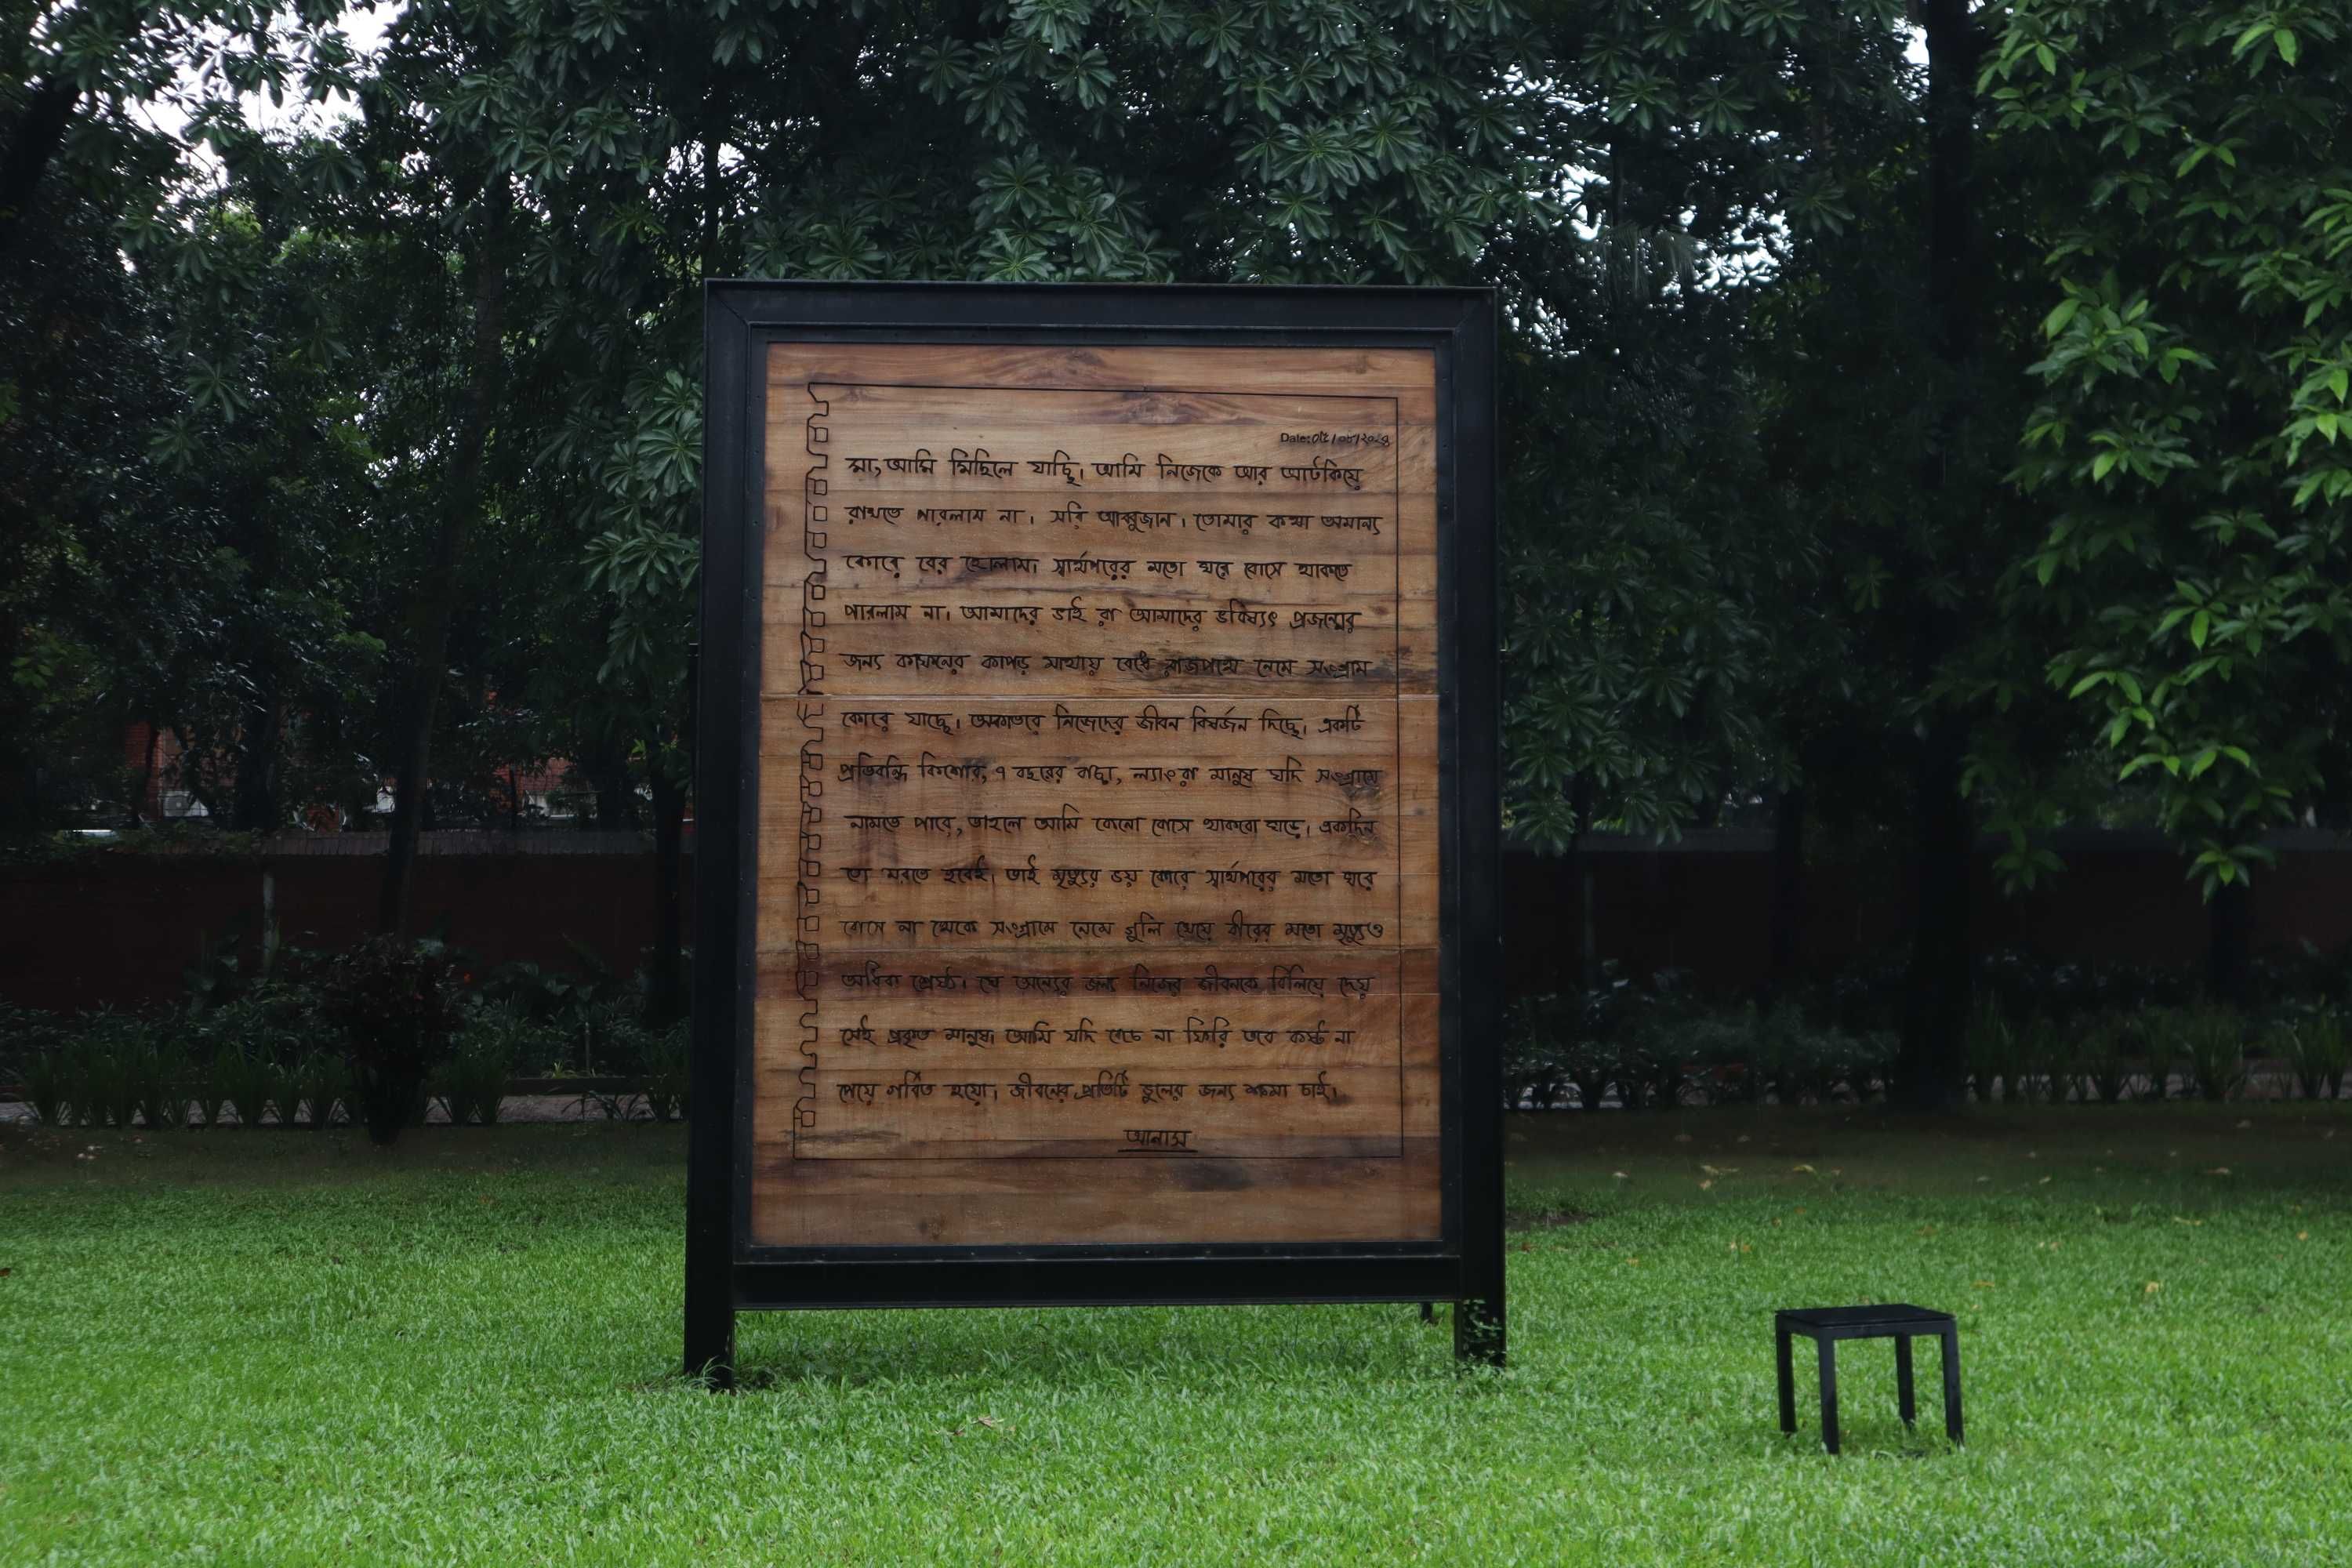 Date: 05/08/2024
মা, আমি মিছিলে যাচ্ছি। আমি নিজেকে আর আটকিয়ে
রাখতে পারলাম না। সরি আব্বুজান। তোমার কথা অমান্য
কোরে বের হোলাম। স্বার্থপরের মতো ঘরে বোসে থাকতে
পারলাম না। আমাদের ভাই রা আমাদের ভবিষ্যৎ প্রজন্মের
জন্য কাফনের কাপড় মাথায় বেধে রাজপথে নেমে সংগ্রাম
কোরে যাচ্ছে। অকাতরে নিজেদের জীবন বিষর্জন দিচ্ছে। একটি
প্রতিবন্ধি কিশোর, ৭ বছরের বাচ্চা, ল্যাংরা মানুষ যদি সংগ্রামে
নামতে পারে, তাহলে আমি কেনো বোসে থাকবো ঘড়ে। একদিন
তো মরতে হবেই। তাই মৃত্যুর ভয় কোরে স্বার্থপরের মতো ঘরে
বোসে না থেকে সংগ্রামে নেমে গুলি খেয়ে বীরের মতো মৃত্যুও
অধিক শ্রেষ্ঠ। যে অন্যের জন্য নিজের জীবনকে বিলিয়ে দেয়
সেই প্রকৃত মানুষ। আমি যদি বেচে না ফিরি তবে কষ্ট না
পেয়ে গর্বিত হয়ো। জীবনের প্রতিটি ভুলের জন্য ক্ষমা চাই।
আনাস